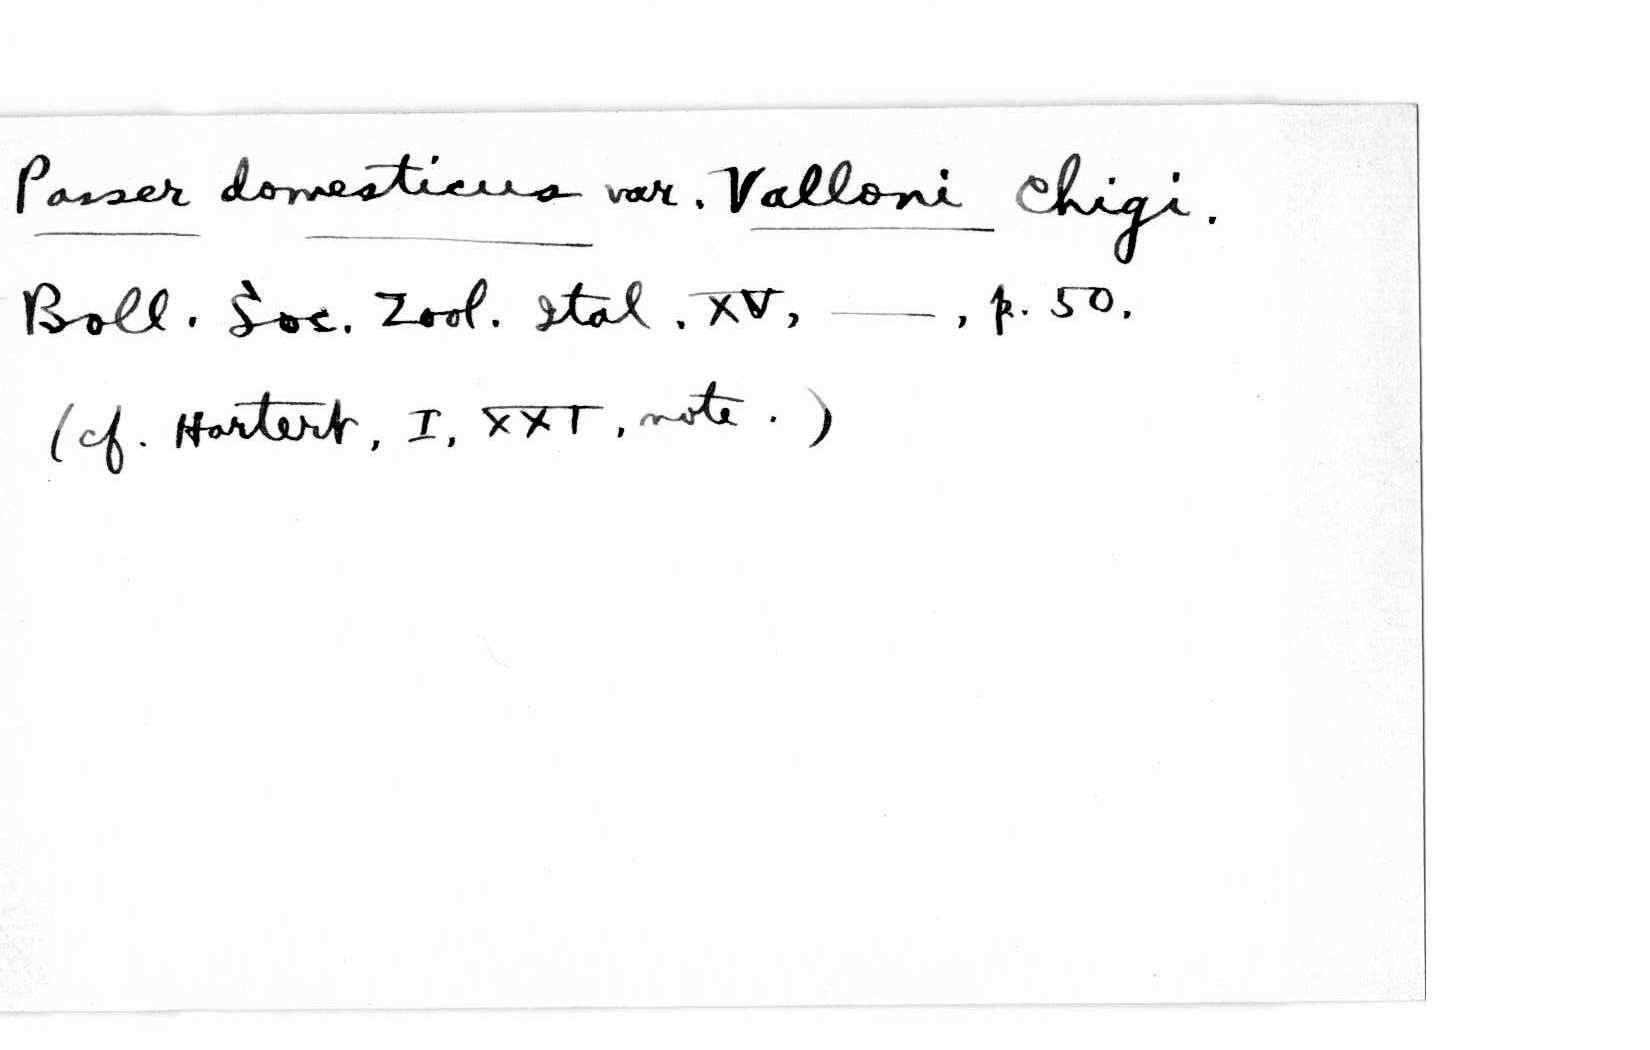 Passer domesticus var. Valloni Chigi.
Boll. Soc. Zool. Ital. XV, —, p. 50.
(cf. Hartert, I, XXI, note.)